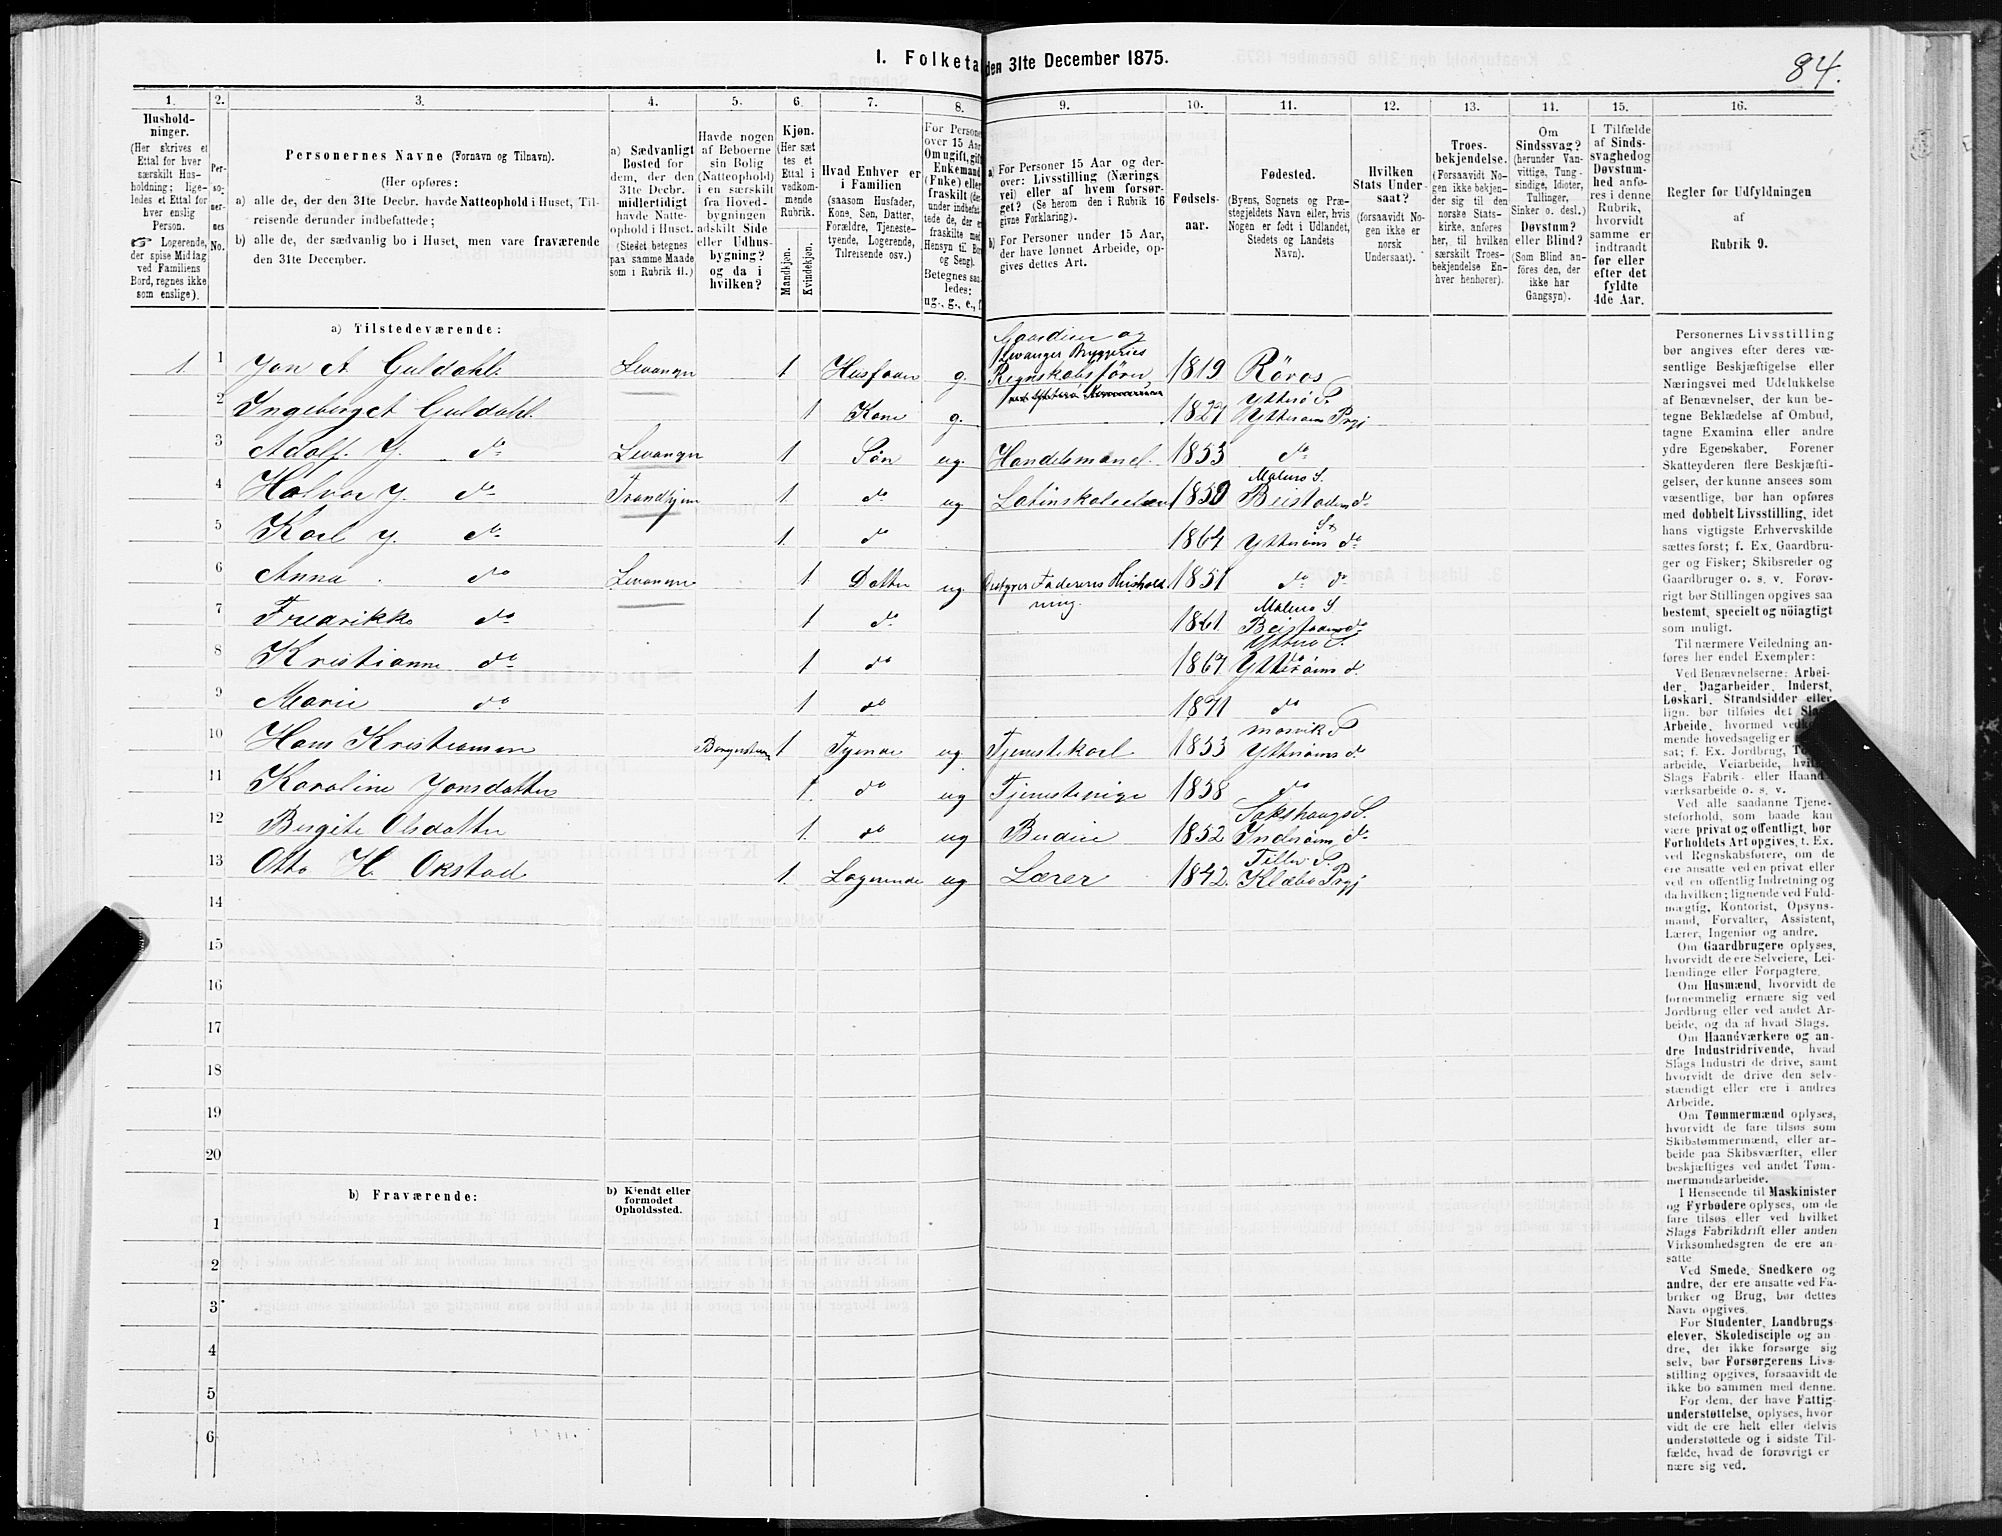 I. Folketa den 31te December 1875.
84.
1. 2. 3. 4. 5. 6. 7. 8. 9. 10. 11. 12. 13. 14. 15. 16.
Hushold-
ninger.
(Her skrives et
Ettal for hver
særskilt Hus-
holdning; lige-
ledes et Ettal for
hver enslig
Person.
☞ Logerende,
der spise Middag
ved Familiens
Bord, regnes ikke
som enslige).
Per-
so-
ner-
nes
No.
Personernes Navne (Fornavn og Tilnavn).
(Her opføres:
a) alle de, der den 31te Decbr. havde Natteophold i Huset, Til-
reisende derunder indbefattede;
b) alle de, der sædvanlig bo i Huset, men vare fraværende
den 31te December.
a) Sædvanligt
Bosted for
dem, der den
31te Decbr.
midlertidigt
havde Natte-
ophold i Huset.
(Stedet betegnes
paa samme Maade
som i Rubrik 11.)
Havde nogen
af Beboerne
sin Bolig
(Natteophold)
i en særskilt
fra Hoved-
bygningen
adskilt Side
eller Udhus-
bygning?
og da i
hvilken?
Kjøn.
(Her sæt-
tes et
Ettal i
vedkom-
mende
Rubrik.
Mandkjøn.
Kvindekjøn.
Hvad Enhver er
i Familien
(saasom Husfader,
Kone, Søn, Datter,
Forældre, Tjeneste-
tyende, Logerende,
Tilreisende osv.)
For Persone
over 15 Aar
Om ugift, gift
Enkemand
(Enke) eller
fraskilt (der-
under indbefat-
tede de, der e
fraskilte med
Hensyn til Bor
og Seng).
Betegnes saa-
ledes:
ug., g., e., f
a) For Personer 15 Aar og der-
over: Livsstilling (Nærings
vei) eller af hvem forsør-
get? (Se herom den i Rubrik 16
givne Forklaring).
b) For Personer under 15 Aar,
der have lønnet Arbeide, op-
gives dettes Art.
Fødsels-
aar.
Fødested.
(Byens, Sognets og Præ-
stegjeldets Navn eller, hvis
Nogen er født i Udlandet,
Stedets og Landets
Navn).
Hvilken
Stats Under-
saat?
(forsaavidt No-
gen ikke er
norsk
Undersaat).
Troes-
bekjendelse.
(Forsaavidt No-
gen ikke bekjen-
der sig til den
norske Stats-
kirke, anføres
her, til hvilken
særskilt Troes-
bekjendelse En-
hver henhører).
Om
Sindssvag?
(herunder Van-
vittige, Tung-
sindige, Idioter,
Tullinger,
Sinker o. desl.)
Døvstum?
eller Blind?
(Som Blind an-
føres den, der
ikke har
Gangsyn).
I Tilfælde
af Sinds-
svaghedog
Døvstum-
hed anfø-
res i denne
Rubrik,
hvorvidt
samme er
indtraadt
før eller
efter det
fyldte
4de Aar.
Regler for Udfyldningen
af
Rubrik 9.
a) Tilstedeværende:
Gaardeier og
Levanger Bryggeries
1. 1 Jon A Guldahl Levanger 1 Husfader g. Regnskabsfører 1819 Röros
Ytterö S
2 Ingeborget Guldahl 1 Kone g. 1827 Ytteröens Prgj
3 Adolf J. do Levanger 1 Søn ug. Handelsmand. 1853 do
4 Halvor J. do Trondhjem 1 do ug Latinskoleelev 1850 Beistadens do
5 Karl J. do 1. do 1864 Ytteröens do
6 Anna do Levanger 1 Datter ug. Bestyrer Faderens Hushold
ning. 1851 do do
7 Fredrikke do 1 do 1861 Beistadens do
Ytterö S.
8 Kristianne do 1 do 1867 Ytteröens d.
9 Marie do 1 do 1871 do
Mosvik S
10 Hans Kristiansen Borgestuen 1 Tjener ug Tjenestekarl 1853 Ytteröens d.
11 Karoline Jonsdatter 1. do ug Tjenestepige 1858 do
Sakshaugs S.
12 Birgite Olsdatter 1. do ug Budeie 1852 Inderöens do
Tiller S.
13 Otto H. Okstad 1. Logerende ug Lærer 1842. Klæbo Prgj
14
15
16
17
18
19
20
b) Fraværende:
b) Kjendt eller
formodet
Opholdssted.
1
2
3
4
5
6
Personernes Livsstilling
bør angives efter deres væ-
sentlige Beskjæftigelse eller
Næringsvei med Udelukkelse
af Benævnelser, der kun be-
tegne Beklædelse af Ombud,
tagne Examina eller andre
ydre Egenskaber. Forener
Skatteyderen flere Beskjæfti-
gelser, der kunne ansees som
væsentlige, bør han opføres
med dobbelt Livsstilling, idet
hans vigtigste Erhvervskilde
sættes først; f. Ex. Gaardbru-
ger og Fisker; Skibsreder og
Gaardbruger o. s. v. Forøv-
rigt bør Stillingen opgives saa
bestemt, specielt og nöiagtigt
som muligt.
Til nærmere Veiledning an-
føres her endel Exempler:
Ved Benævnelserne: Arbei-
der, Dagarbeider, Inderst,
Løskarl, Strandsidder eller
lign. bør tilføies det Slags
Arbeide, hvormed vedkom-
mende hovedsagelig er
sat; f. Ex. Jordbrug,
arbeide, Veiarbeide,
Slags Fabrik- eller Haand-
værksarbeide o. s. v.
Ved alle saadanne Tjene-
steforhold, som baade kan
være privat og offentligt, bør
Forholdets Art opgives, t. Ex.
ved Regnskabsførere, om de
ere ansatte ved en privat eller
ved en offentlig Indretning og
da hvilken; lignende ved Fuld-
mægtig, Kontorist, Opsyns-
mand, Forvalter, Assistent,
Lærer, Ingeniør og andre.
Om Gaardbrugere oplyses,
hvorvidt de ere Selveiere, Lei-
lændinge eller Forpagtere.
Om Husmænd, hvorvidt de
fornemmelig ernære sig ved
Jordbrug eller ved andet Ar-
beide, og da af hvad Slags.
Om Haandværkere og an-
dre Industridrivende, hvad
Slags Industri de drive, samt
hvorvidt de drive den selv-
stændigt eller ere i andres
Arbeide.
Om Tømmermænd oplyses,
hvorvidt de fare tilsøs som
Skibstømmermænd, eller ar-
beide paa Skibsværfter, eller
beskjæftiges ved andet Tøm-
mermandsarbeide.
I Henseende til Maskinister
og Fyrbødere oplyses, om de
fare tilsøs eller ved hvilket
Slags Fabrikdrift eller anden
Virksomhedsgren de ere an-
satte.
Ved Smede, Snedkere og
andre, der ere ansatte ved Fa-
briker og Brug, bør dettes
Navn opgives.
For Studenter, Landbrugs-
elever, Skoledisciple og an-
dre, der ikke forsørge sig
selv, bør Forsørgerens Livs-
stilling opgives, forsaavidt de
ikke bo sammen med denne.
For dem, der have Fattig-
understøttelse, oplyses, hvor-
vidt de ere helt eller delvis
understøttede og i sidste Til-
fælde, hvad de forøvrigt er-
nære sig ved.